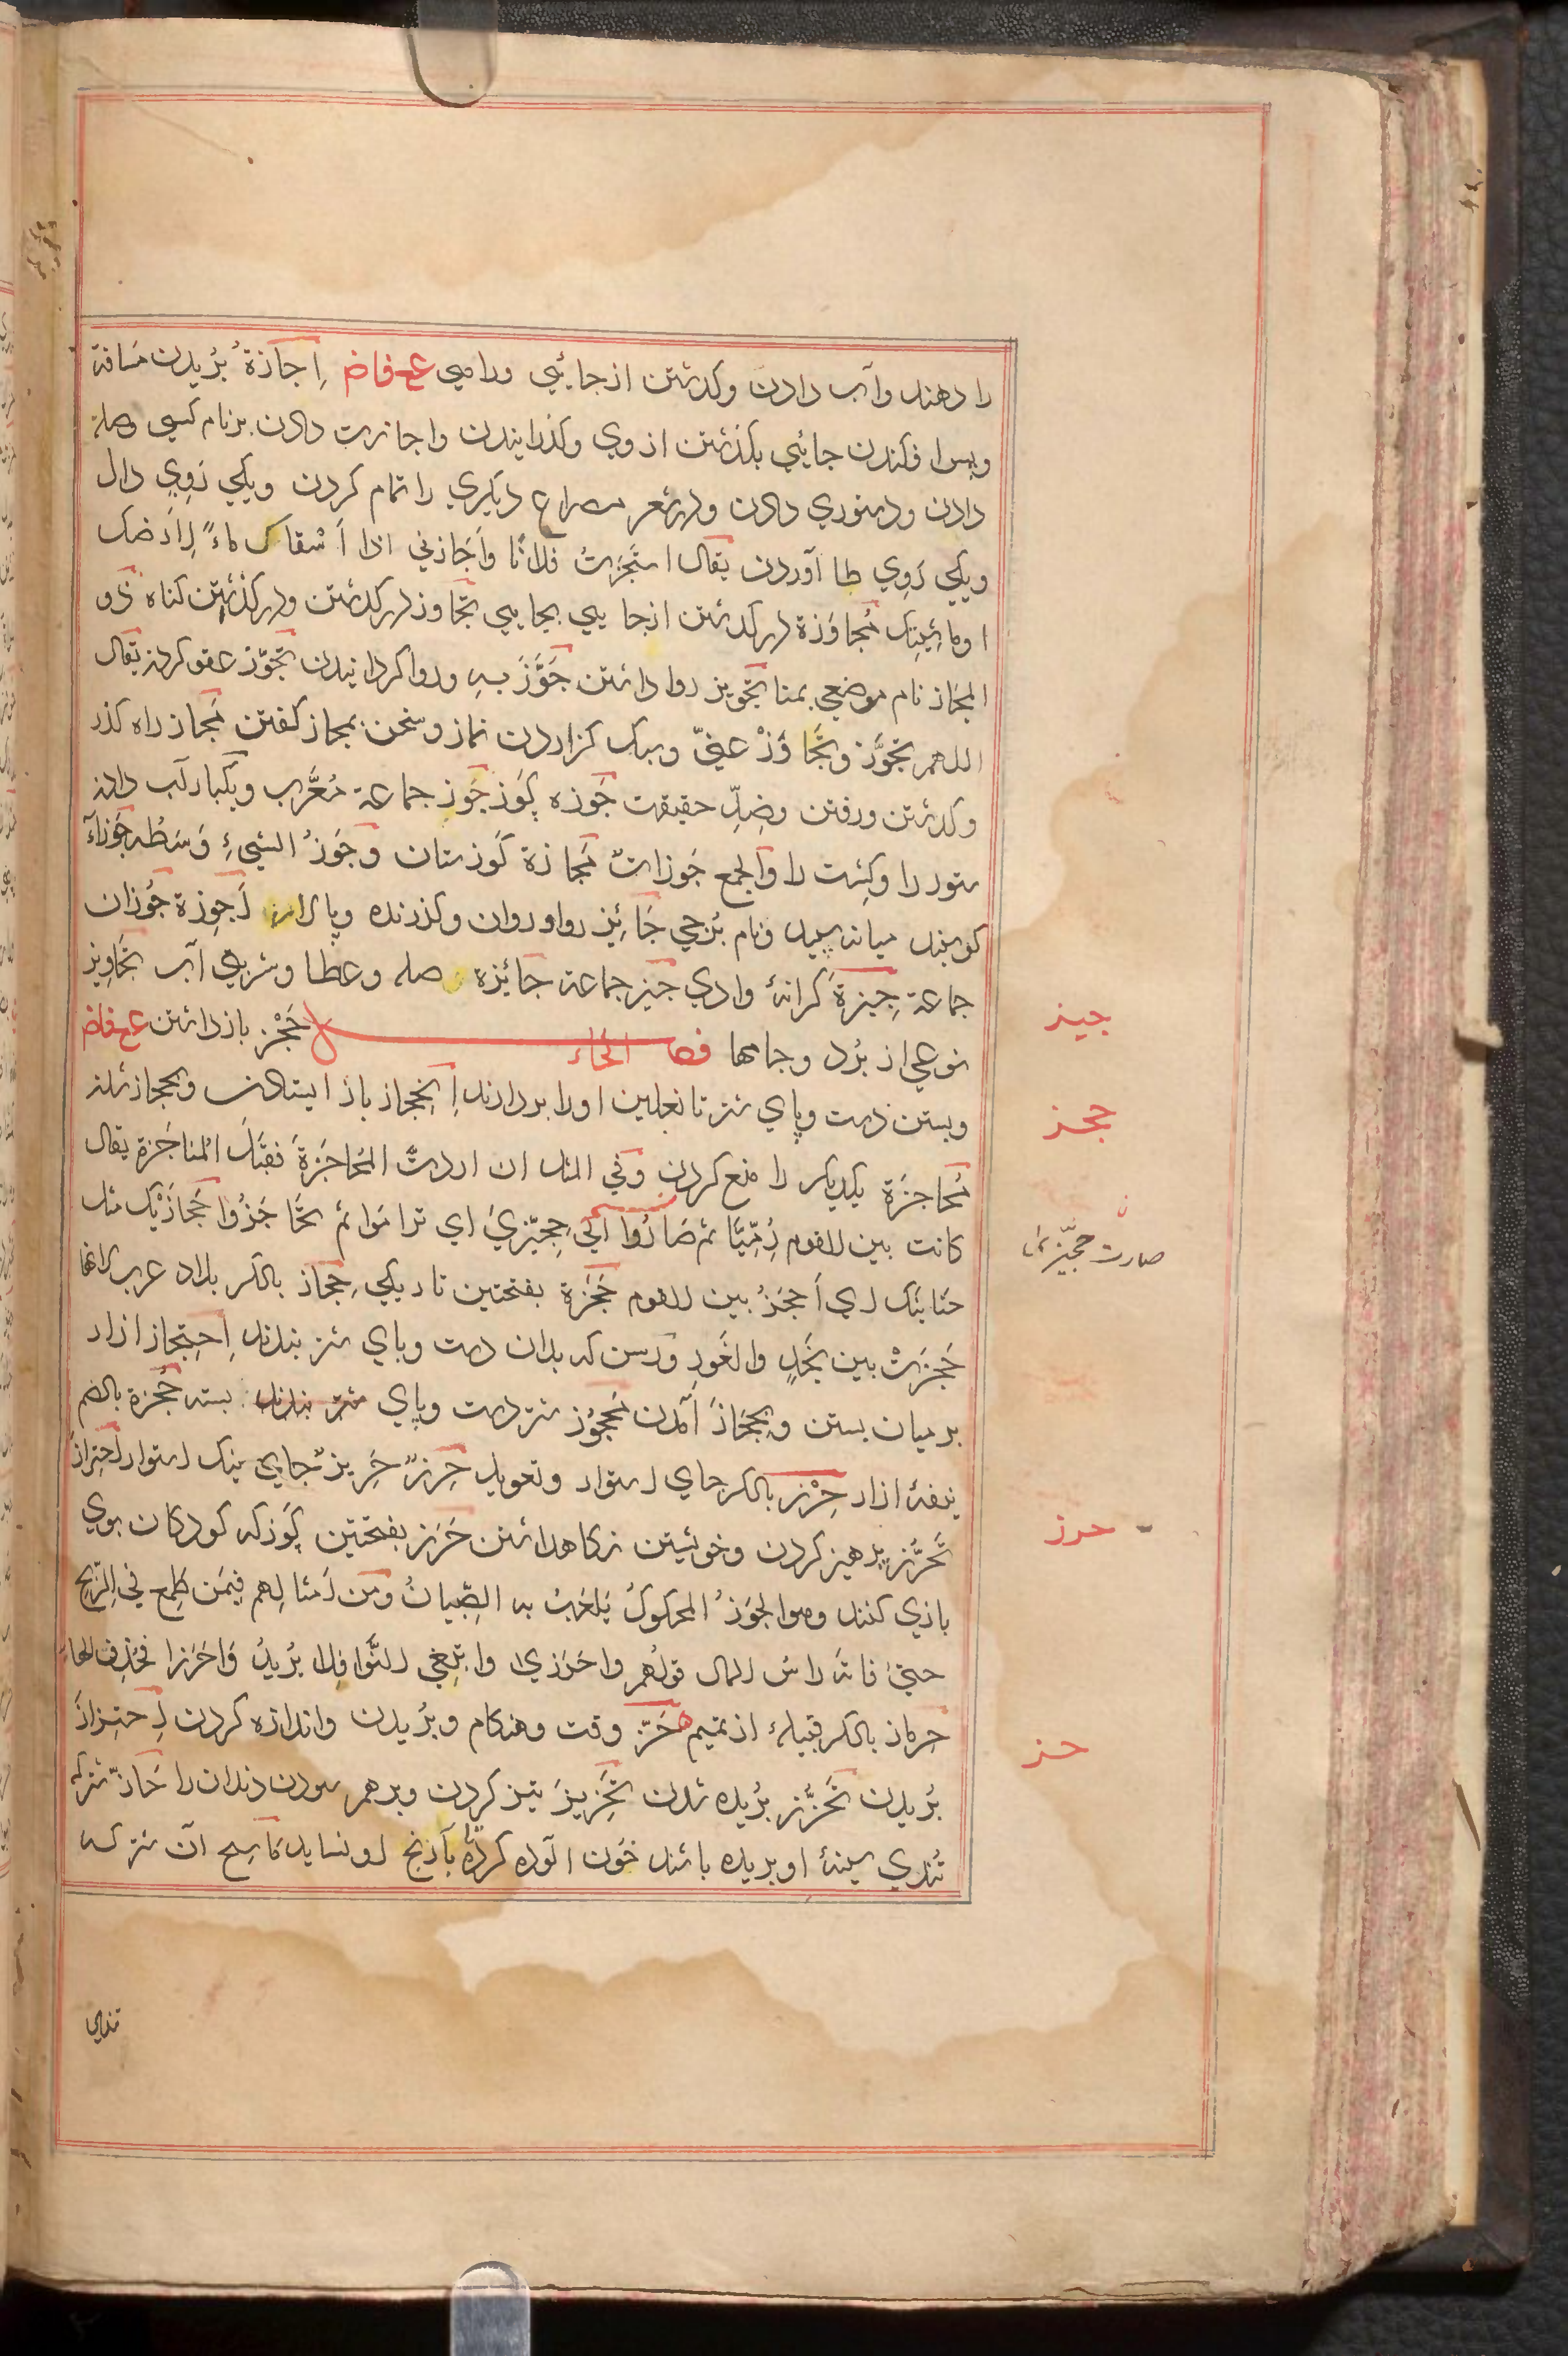 را دهند وآب دادن وكدشتن ازجائي وراهي ع ف اض اِجَازة بُريدن مسافة
وپس افكندن جائي بكذشتن ازوي وكذرانيدن واجازت دادن برنام كسي وصلة
دادن ودستوري دادن ودرشعر مصراع ديكري را تمام كردن ويكي رَوِي دال
ويكي رَوِي طا آوردن يقال استَجَزتُ فلانًا وَاَجَازني اذا اَسْقاك ماءً لِاَرضك
اوماشيتك مُجاوَزة دركدشتن ازجايي بجايي تجاوز دركدشتن ودركذشتن كناه ذو
المجَاز نام موضعي بمنا تجويز روا داشتن جَوَّزَ به وروا كردانيدن تجَوّز عفو كردن يقال
اللهم تجَوَّز وتَجَاوَزْ عنيّ وسبك كزاردن نماز وسخن بمجاز كفتن مَجاز راه كذر
وكدشتن ورفتن وضِدِّ حقيقت جَوزه كَوز جَوز جماعة مُعَرَّب ويكبار آب دادن
ستور را وكِشت را والجمع جَوزات مَجَازة كَوزستان وجَوزُ الشيءِ وَسَطُه جَوزآءُ
كوسفند ميانه سپيد ونام بُرجي جَائِز روا وروان وكذرنده وپالار اَجوِزة جُوزان
جماعة جِيزة كرانهٔ وادي جيز جماعة جَائِزة صله وعطا وشربتي آب تَجاويز
نوعي از بُرد وجامها فصل الحاء حَجْز بازداشتن ع ف اض
وبستن دست وپاي شتر تا نعلين اورا بردارند اِنحِجاز باز ايستادن وبحجاز شدن
مُحاجَزة يكديكر را منع كردن وفي المثل ان اردتَ المُحاجَزةَ فقَبلَ المُناجَزة يقال
كانت بين القوم رِمِّيّا ثم صَارُوا اِليٰ حِجِّيزيٰ اي تراموا ثم تحَاجَزُوا حَجازَيْك مثل
حنانَيك اي اُحجُز بين القوم حَجَزة بفتحتين تاريكي حِجاز بالكسر بلاد عرب لانها
حَجَزَتْ بين نَجْدٍ والغَورِ ورسن كه بدان دست وپاي شتر بندند اِحتِجاز ازار
برميان بستن وبحجَاز آمدن مَحجُوز شتر دست وپاي شتر بندند بسته حُجزة بالضم
نيفهٔ ازار حِرْز بالكسر جاي استوار وتعويذ حِرزٌ حَرِيزٌ جايي نيك استوار اِحتِراز
تَحَرُّز پرهيز كردن وخويشتن نكاهداشتن حَرَز بفتحتين كَوز كه كودكان بوي
بازي كنند وهو الجَوزُ المحكوكُ يَلعَبُ به الصِّبيانُ ومِن اَمثالِهم فيمَن طَمِعَ في الرِّبح
حتيٰ فاتَه راسُ المال قولُهم واحَرَزي وابتغي النَّوافِلا يُريدُ وَاحَرَزا فحذف الهاء
حِرماز بالكسر قبيلهٔ از تميم حَزّ وقت وهنكام وبُريدن واندازه كردن اِحتِزاز
بُريدن تَحَزُّز بُريده شدن تَحزِيز تيز كردن وبرهم سودن دندان را حَازّ شتركه
تُندي سينهٔ او بريده باشد خَون آلوده كرده بآرنج او نسايد مَاسِح آن شتر كه
جيز
حجز
صارت حجِّيزيٰ
حرز
حز
تندي